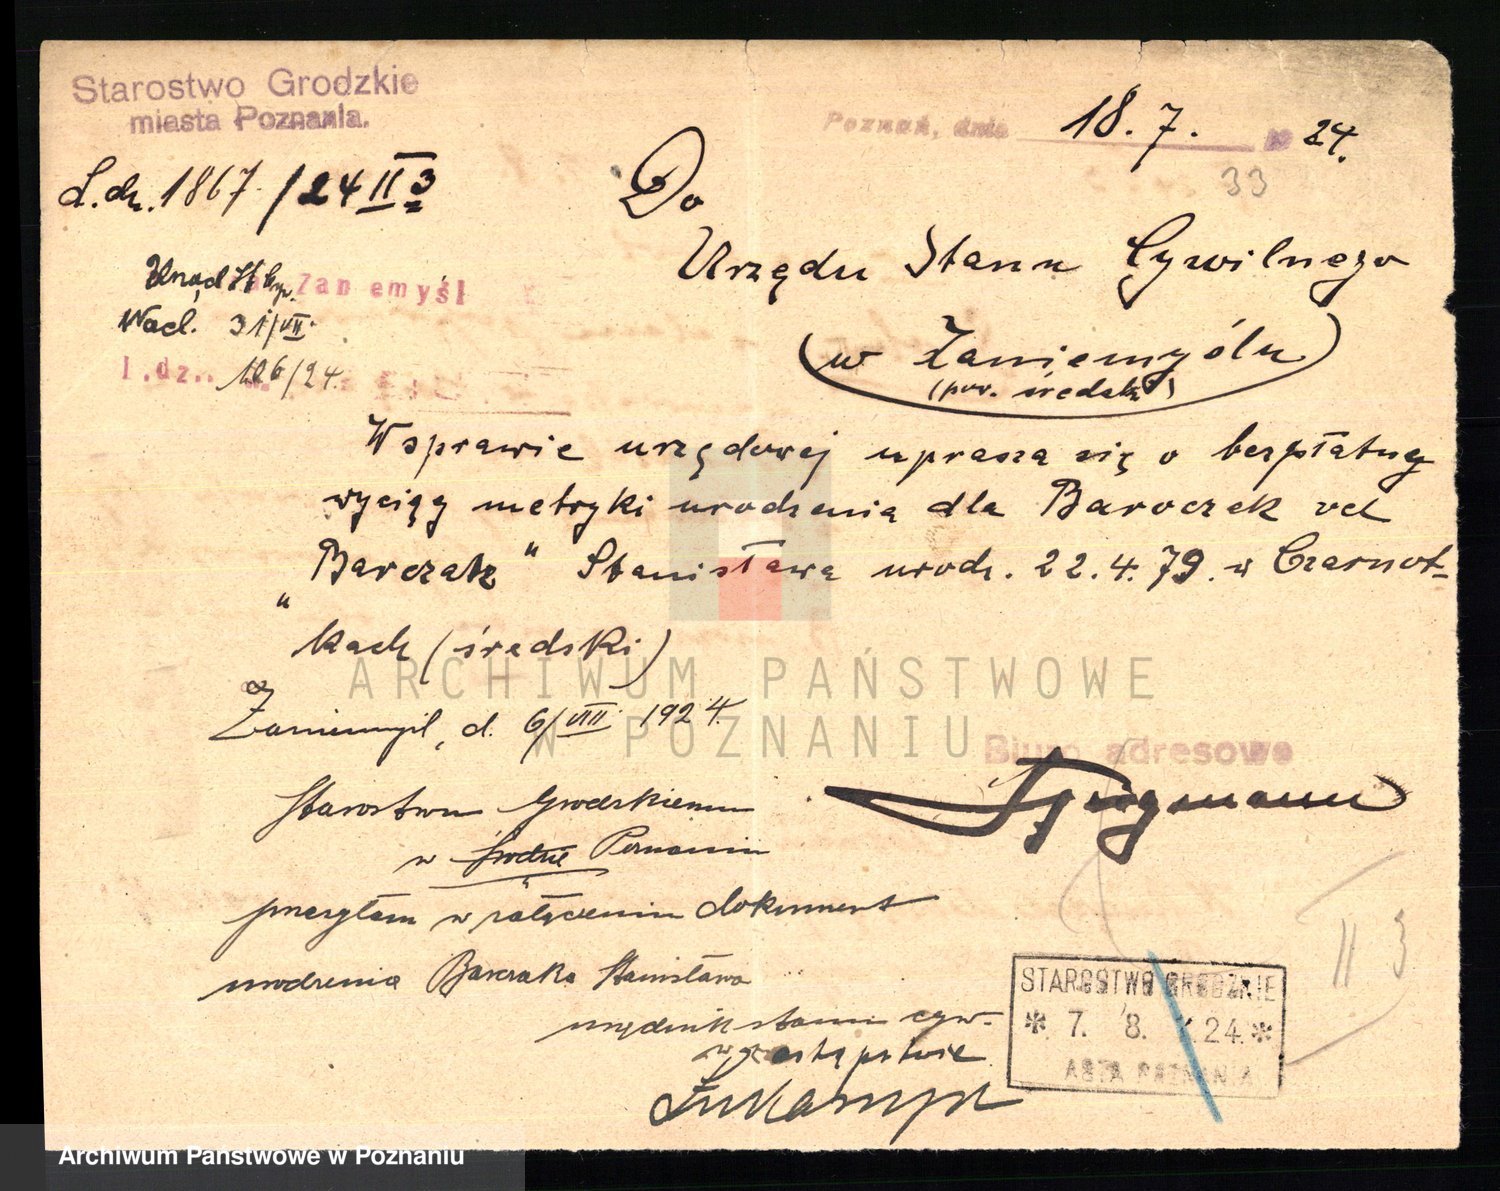 Starostwo Grodzkie
miasta Poznania.
Poznań, dnia 18. 7. 19 24.
33
L.dz. 1867/24 II 3
Do
Urzędu Stanu Cywilnego
(w Zaniemyślu)
(pow. średzk)
Urząd St. Cyw. Zaniemyśl
Wpł. 31/VII.
l.dz. 106/24.
W sprawie urzędowej uprasza się o bezpłatny
wyciąg metryki urodzenia dla Baroczek vel
„Barczak" Stanisława urodz. 22.4.79. w Czarnot-
kach (średski)
Zaniemyśl, d. 6/VIII. 1924.
Biuro adresowe
Starostwu Grodzkiemu
w Środzie Poznaniu
przesyłam w załączeniu dokument
urodzenia Barczaka Stanisława
urzędnik stanu cyw.
w zastępstwie
II 3
STAROSTWO GRODZKIE
* 7. 8. 24 *
MIASTA POZNANIA
ARCHIWUM PAŃSTWOWE
W POZNANIU
Archiwum Państwowe w Poznaniu